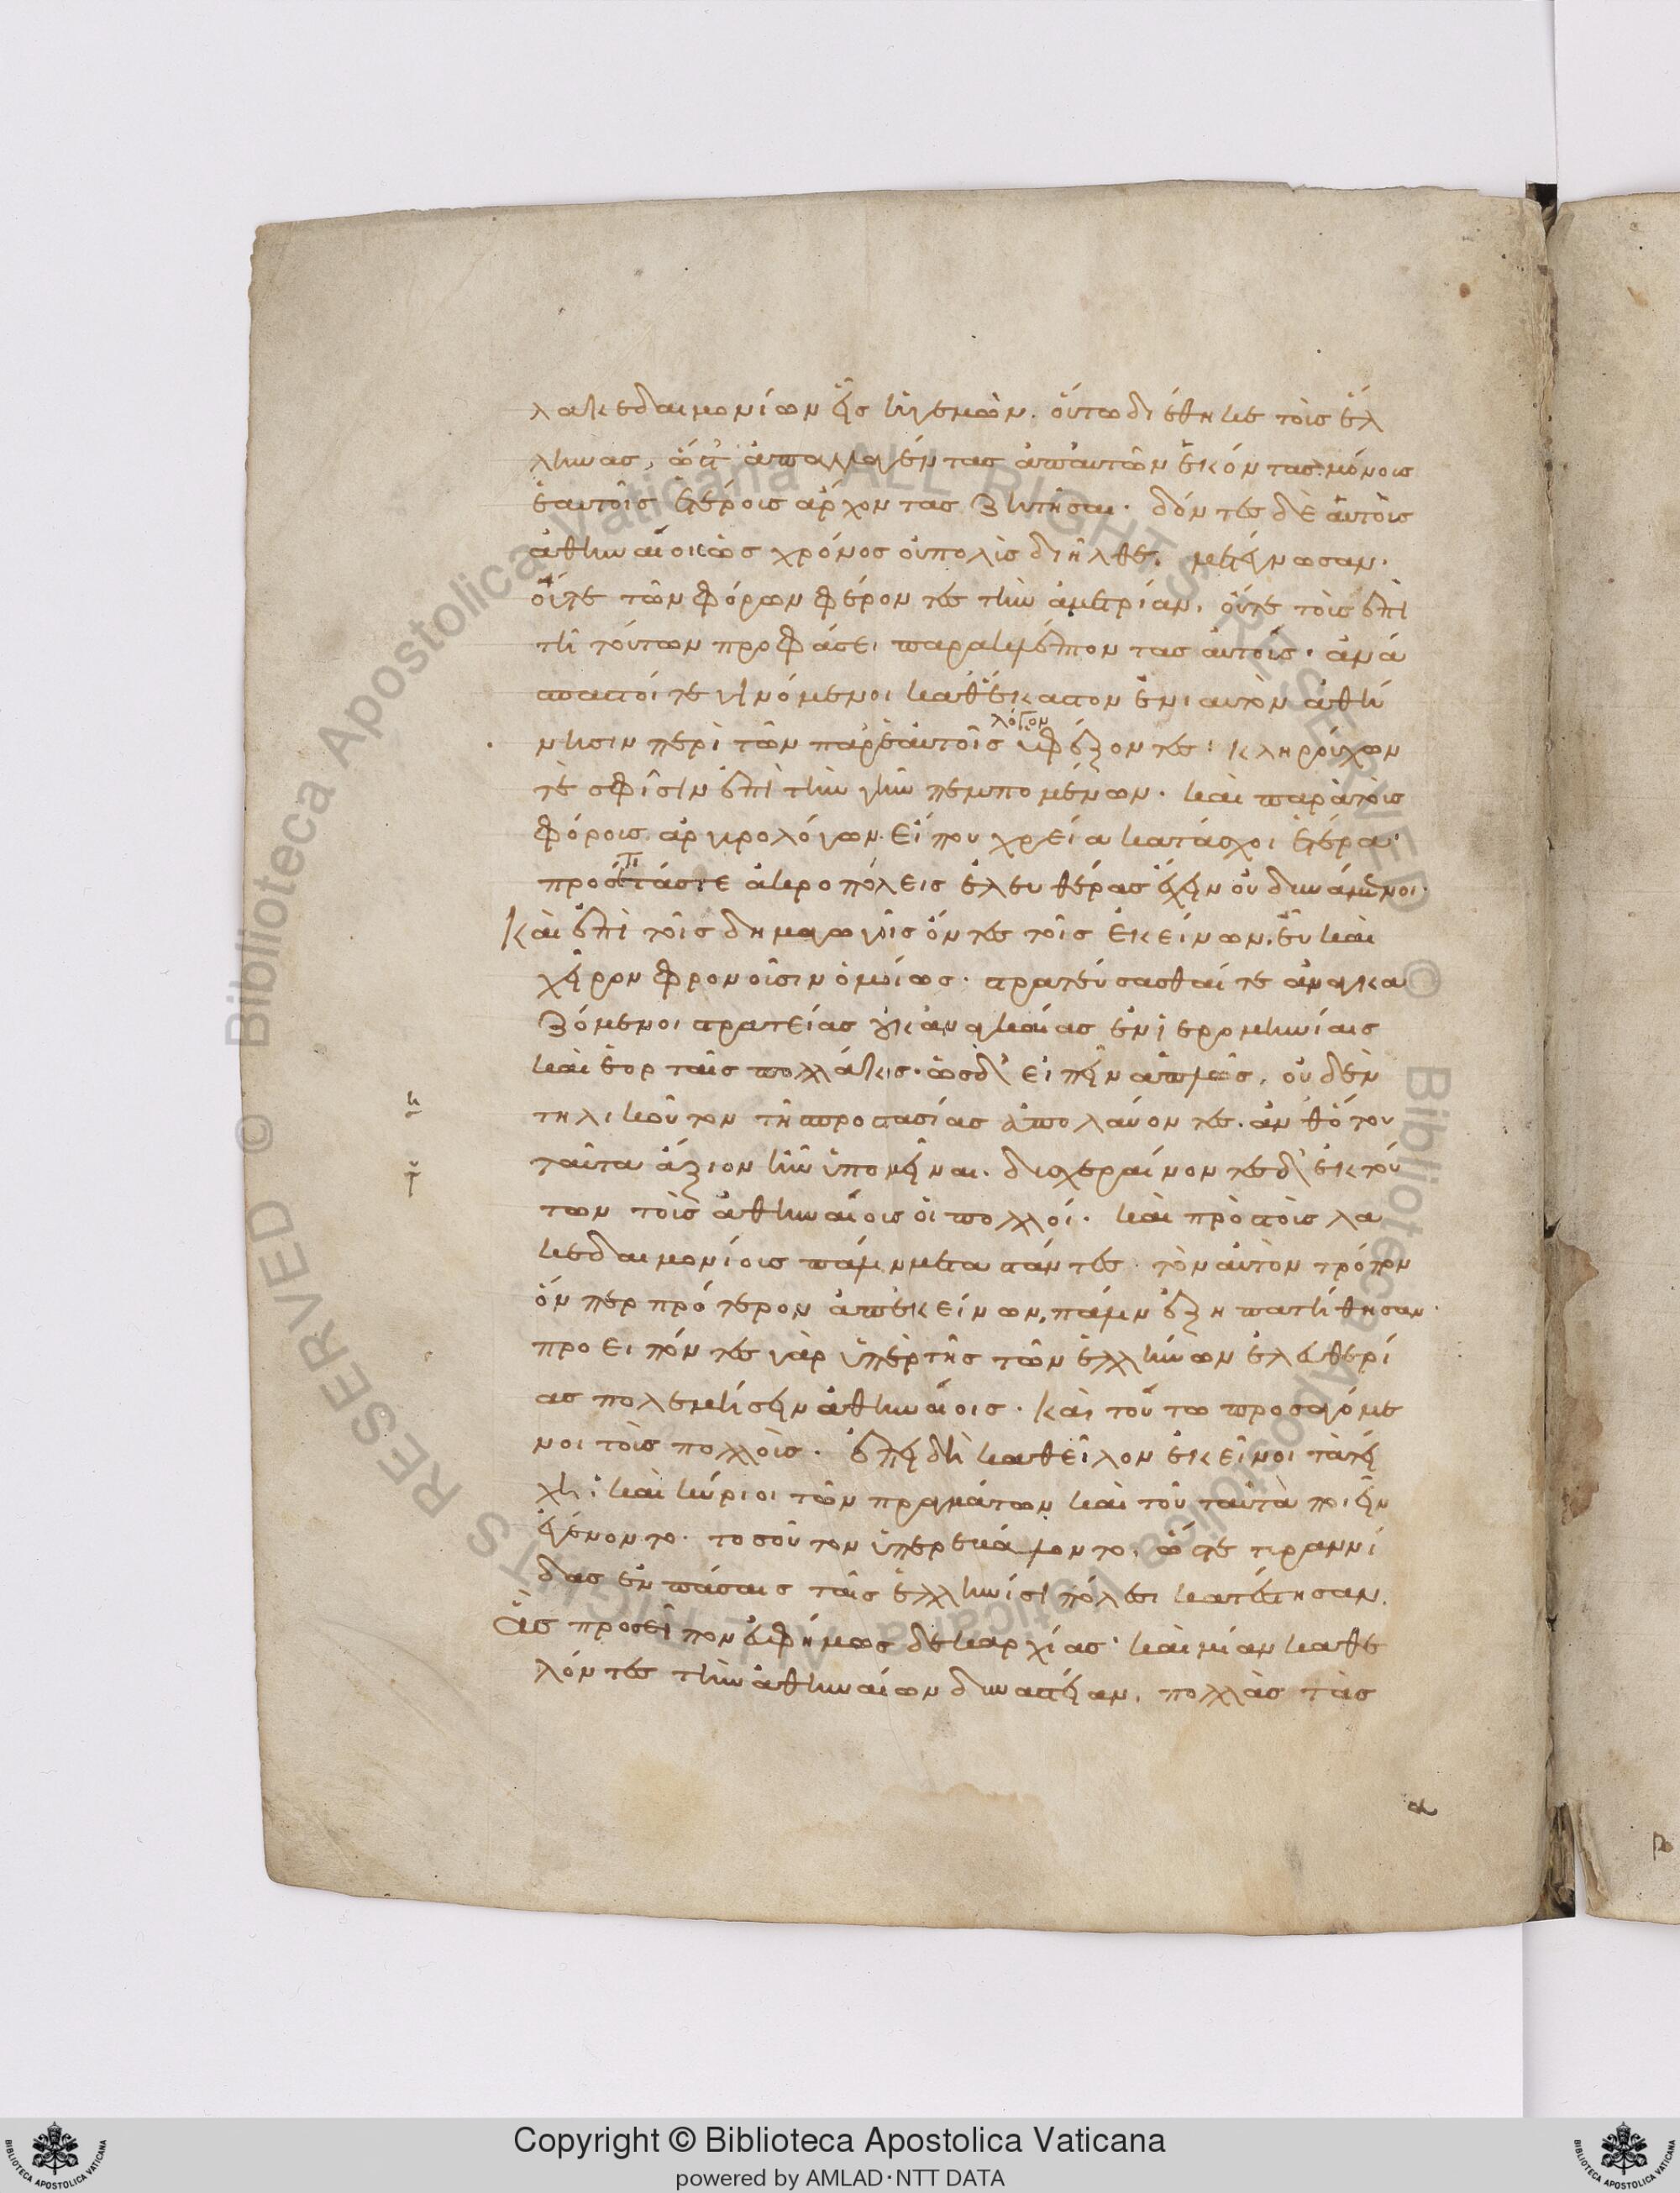 λακεδαιμονίων εἰς ἡγεμὼν. οὕτω διέθηκε τοὺς ἕλ
ληνας, ὥστ ἀπαλλαγέντας ἀπαυτῶν ἑκόντας μόνοις
ἑαυτοῖς ἑτέροις ἄρχοντας ζητῆσαι. δόντες δὲ αὑτοὺς
ἀθηναίοις ὡς χρόνος οὐ πολὺς διῆλθε, μετέγνωσαν.
οὔτε τῶν φόρων φέροντες τὴν ἀμετρίαν, οὔτε τοὺς ἐπὶ
τῇ τούτων προφάσει παρακλέπτοντας αὐτούς. ἀνά
σπαστοί τε γινόμενοι καθ ἕκαστον ἐνιαυτὸν ἀθή
νησιν περὶ τῶν παρ ἑαυτοῖς λόγον ὑφέξοντες: κληρούχων
τὲ σφίσιν ἐπὶ τὴν γῆν πεμπομένων. καὶ παρὰ τοὺς
φόρους ἀργυρολόγων. εἴ που χρεία κατάσχοι ἑτέρα.
πρὸς τάς τε ἀκροπόλεις ἐλευθέρας ἔχειν οὐ δυνάμενοι.
καὶ ἐπὶ τοῖς δημαγωγοῖς ὄντες τοῖς ἐκείνων, εὖ καὶ
χεῖρον φρονοῦσιν ὁμοίως. στρατεύσασθαί τε ἀναγκα
ζόμενοι στρατείας οὐκ ἀναγκαίας ἐν ἱερομηνίαις
καὶ ἑορταῖς πολλάκις. ὡς δ εἰπεῖν ἁπλῶς, οὐδὲν
τηλικοῦτον τῆς προστασίας ἀπολαύοντες. ἀνθ ὅτου
ταῦτα ἄξιον ἦν ὑπομεῖναι. δυσχεραίνοντες δ ἐκ τού
των τοῖς ἀθηναίοις οἱ πολλοί. καὶ πρὸς τοὺς λα
κεδαιμονίους πάλιν μεταστάντες. τὸν αὐτὸν τρόπον
ὅνπερ πρότερον ἀπ ἐκείνων, πάλιν ἐξηπατήθησαν.
προειπόντες γὰρ ὑπὲρ τῆς τῶν ἑλλήνων ἐλευθερί
ας πολεμήσειν ἀθηναίοις. καὶ τούτω προσαγόμε
νοι τοὺς πολλοὺς. ἐπειδὴ καθεῖλον ἐκεῖνοι τὰ τεί
χη: καὶ κύριοι τῶν πραγμάτων καὶ τοῦ ταῦτα ποιεῖν
ἐγένοντο. τοσοῦτον ὑπερεκάμψοντο, ὥστε τυραννί
δας ἐν πάσαις ταῖς ἑλληνίσι πόλεσι κατέστησαν.
ἃς προσεῖπον εὐφήμως δεκαρχίας. καὶ μίαν καθε
λόντες τὴν ἀθηναίων δυναστείαν, πολλὰς τὰς
α
Copyright © Biblioteca Apostolica Vaticana
powered by AMLAD·NTT DATA